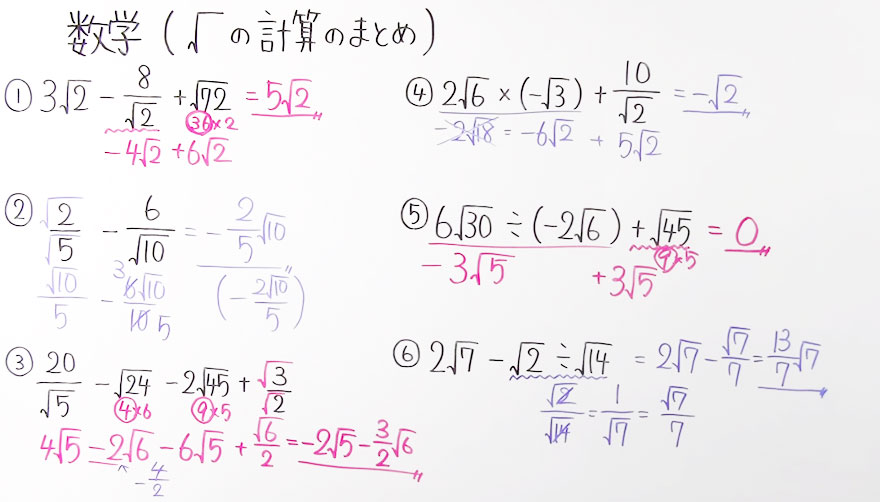 数学 (√ の計算のまとめ)
① 3√2 - 8/√2 + √72 = 5√2
36×2
-4√2 + 6√2
② √2/√5 - 6/√10 = -2/5√10
√10/5 - 3 6√10/10 5 (-2√10/5)
③ 20/√5 - √24 - 2√45 + √3/√2
4×6 9×5
4√5 - 2√6 - 6√5 + √6/2 = -2√5 - 3/2√6
-4/2
④ 2√6 × (-√3) + 10/√2 = -√2
-2√18 = -6√2 + 5√2
⑤ 6√30 ÷ (-2√6) + √45 = 0
9×5
-3√5 + 3√5
⑥ 2√7 - √2 ÷ √14 = 2√7 - √7/7 = 13/7√7
√2/√14 = 1/√7 = √7/7